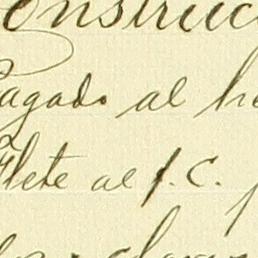 Construcc
Pagado al he
Flete al f. C. p